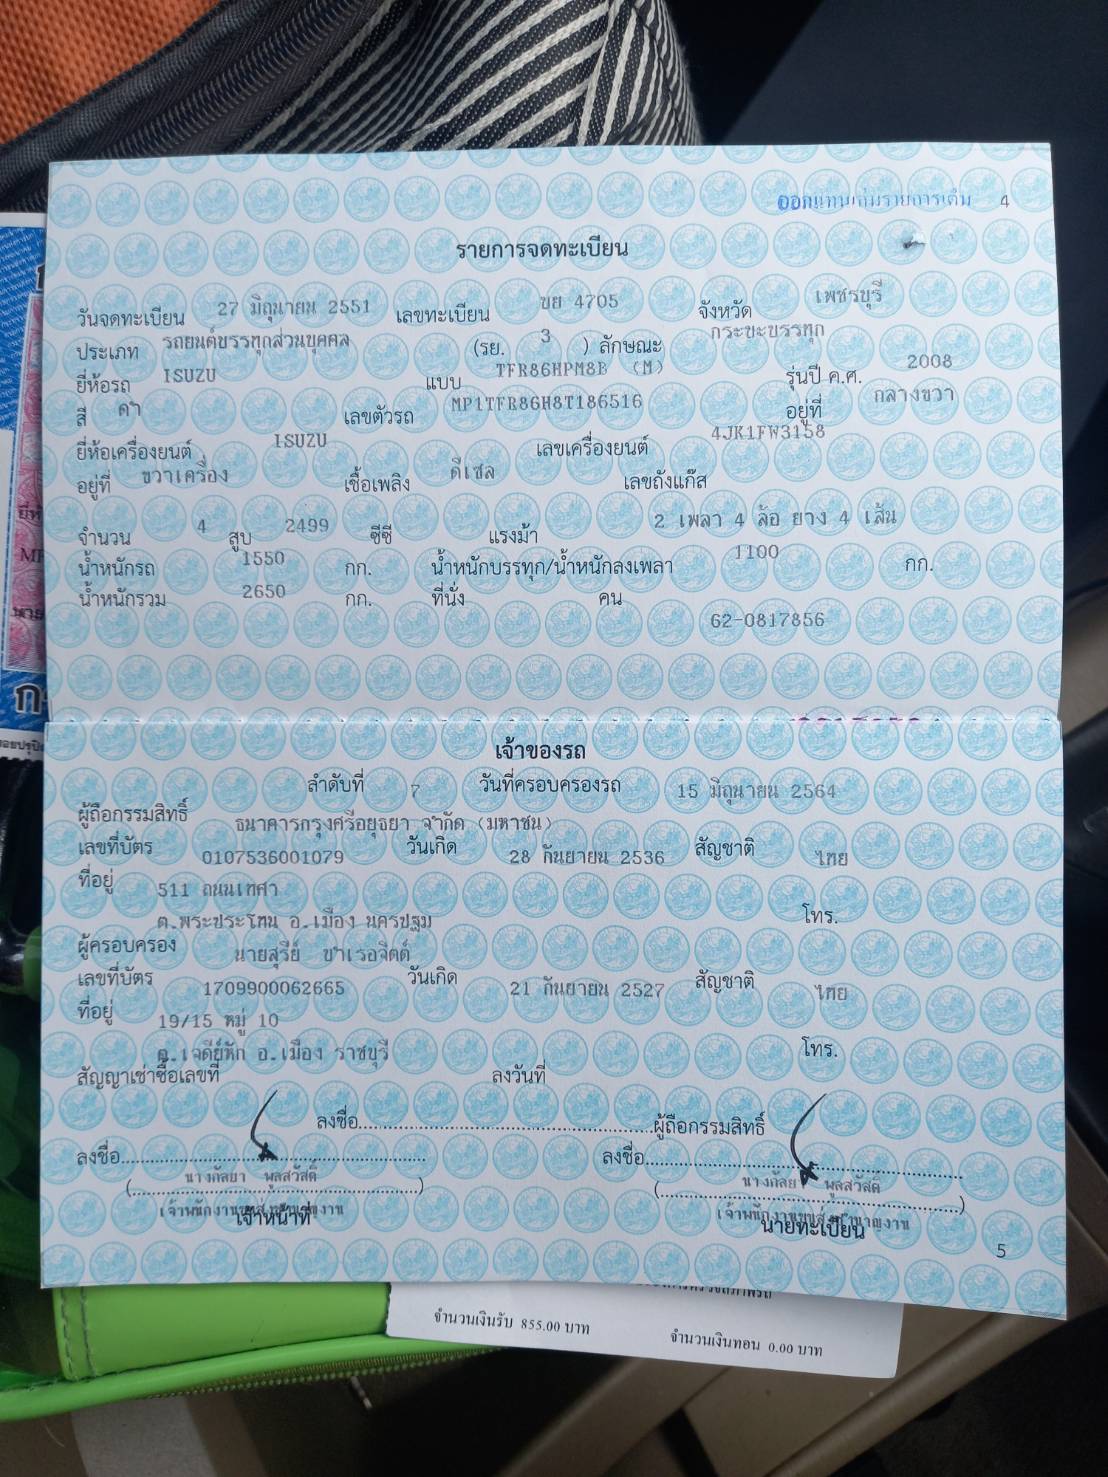 ออกแทนเล่มรายการเดิม 4
รายการจดทะเบียน
วันจดทะเบียน 27 มิถุนายน 2551 เลขทะเบียน บย 4705 จังหวัด เพชรบุรี
ประเภท รถยนต์บรรทุกส่วนบุคคล (รย. 3 ) ลักษณะ กระบะบรรทุก
ยี่ห้อรถ ISUZU แบบ TFR86HPM8B (M) รุ่นปี ค.ศ. 2008
สี ดำ เลขตัวรถ MP1TFR86H8T186516 อยู่ที่ กลางขวา
ยี่ห้อเครื่องยนต์ ISUZU เลขเครื่องยนต์ 4JK1FW3158
อยู่ที่ ขวาเครื่อง เชื้อเพลิง ดีเซล เลขถังแก๊ส
จำนวน 4 สูบ 2499 ซีซี แรงม้า 2 เพลา 4 ล้อ ยาง 4 เส้น
น้ำหนักรถ 1550 กก. น้ำหนักบรรทุก/น้ำหนักลงเพลา 1100 กก.
น้ำหนักรวม 2650 กก. ที่นั่ง คน
62-0817856
เจ้าของรถ
ลำดับที่ 7 วันที่ครอบครองรถ 15 มิถุนายน 2564
ผู้ถือกรรมสิทธิ์ ธนาคารกรุงศรีอยุธยา จำกัด (มหาชน)
เลขที่บัตร 0107536001079 วันเกิด 28 กันยายน 2536 สัญชาติ ไทย
ที่อยู่ 511 ถนนเทศา
ต.พระประโทน อ.เมือง นครปฐม โทร.
ผู้ครอบครอง นายสุรีย์ ชำเรอจิตต์
เลขที่บัตร 1709900062665 วันเกิด 21 กันยายน 2527 สัญชาติ ไทย
ที่อยู่ 19/15 หมู่ 10
ต.เจดีย์หัก อ.เมือง ราชบุรี โทร.
สัญญาเช่าซื้อเลขที่ ลงวันที่
ลงชื่อ ผู้ถือกรรมสิทธิ์
ลงชื่อ ลงชื่อ
นางกัลยา พูลสวัสดิ์ นางกัลยา พูลสวัสดิ์
เจ้าพนักงานขนส่งชำนาญงาน เจ้าพนักงานขนส่งชำนาญงาน
เจ้าหน้าที่ นายทะเบียน
5
จำนวนเงินรับ 855.00 บาท จำนวนเงินทอน 0.00 บาท